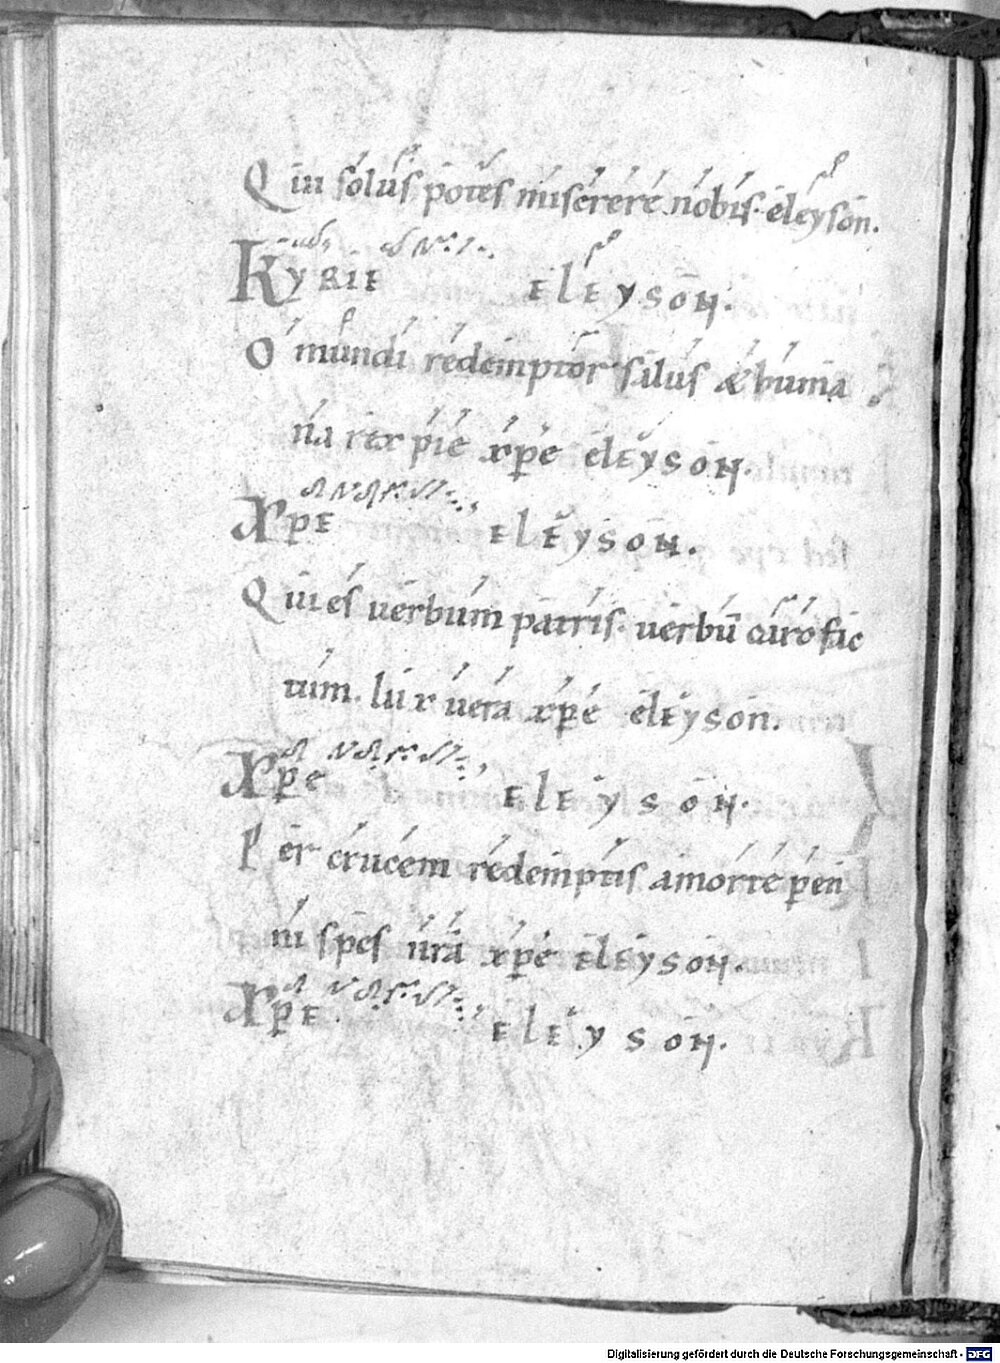 Qui solus potes miserere nobis. eleyson.
Kyrie eleyson.
O mundi redemptor salus & huma
na rex pie xp̄e eleyson.
Xp̄e eleyson.
Qui es uerbum patris. uerbū caro fac
tum. lux uera xp̄e eleyson.
Xp̄e eleyson.
Per crucem redemptis amorte peren
ni spes nr̄a xp̄e eleyson.
Xp̄e eleyson.
Digitalisierung gefördert durch die Deutsche Forschungsgemeinschaft - DFG